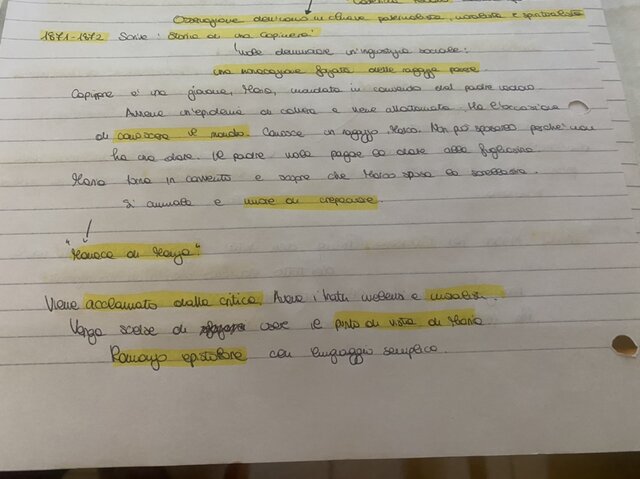 Osservazione dell'uomo in chiave paternalista, moralista e spiritualista
1871-1872 Scrive: "Storia di una Capinera"
Vuole denunciare un'ingiustizia sociale:
una monacazione forzata delle ragazze povere
Capinera è una giovane, Maria, mandata in convento dal padre vedovo.
Avviene un'epidemia di colera e viene allontanata. Ha l'occasione
di conoscere il mondo. Conosce un ragazzo, Marco. Non può sposarlo perché non
ha una dote. Il padre vuole pagare la dote alla figliastra.
Maria torna in convento e scopre che Marco sposa la sorellastra.
Si ammala e muore di crepacuore
"Monaca di Monza"
Viene acclamato dalla critica. Aveva i tratti e
Verga scelse di usare il punto di vista di Maria
Romanzo epistolare con linguaggio semplice.